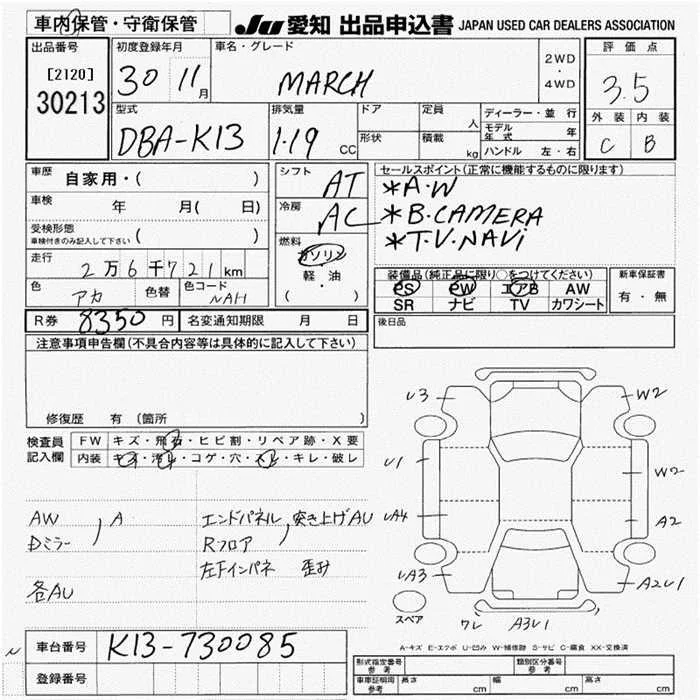 車内保管・守衛保管
JU 愛知 出品申込書 JAPAN USED CAR DEALERS ASSOCIATION
出品番号
[2120]
30213
初度登録年月
30 11月
車名・グレード
MARCH
2WD
・
4WD
評価点
3.5
外装 内装
C B
型式
DBA-K13
排気量
1.19 CC
ドア
形状
定員 人
積載 kg
ディーラー・並行
モデル年式 年
ハンドル 左・右
車歴 自家用・( )
車検 年 月( 日)
受検形態
車検付きのみ記入して下さい ( )
走行
2万6千721km
色 アカ 色替 色コード NAH
シフト AT
冷房 AC
燃料 ガソリン
軽・油
( ・ )
セールスポイント(正常に機能するものに限ります)
*A・W
*B.CAMERA
*T.V.NAVi
装備品(純正品に限り○をつけてください)
PS PW エアB AW
SR ナビ TV カワシート
新車保証書
有・無
R券 8350円 名変通知期限 月 日
後日品
注意事項申告欄(不具合内容等は具体的に記入して下さい)
修復歴 有(箇所 )
検査員記入欄
FW キズ・飛石・ヒビ割・リペア跡・X要
内装 キズ・汚れ・コゲ・穴・スレ・キレ・破レ
AW
Dミラー
A
各AU
エンドパネル
Rフロア
突き上げAU
左下インパネ 歪み
U3
W2
U1
W2
UA4
A2
UA3
A2U1
スペア
ワレ A3U1
A-キズ E-エクボ U-凹み W-補修跡 S-サビ C-腐食 XX-交換済
車台番号 K13-730085
登録番号
型式指定番号
参考
類別区分番号
参考
車車証明用
参考
長さ cm 幅 cm 高さ cm